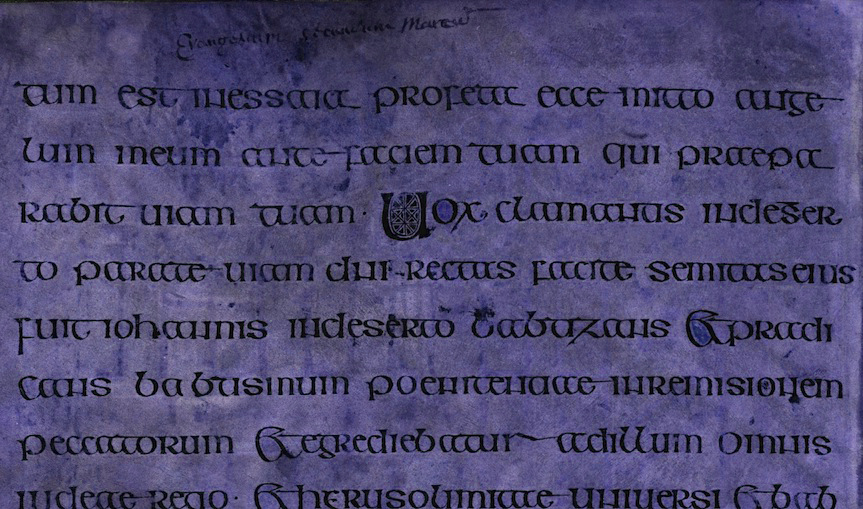 Evangelium secundum Marcum
tum est inessaia profeta ecce mitto ange
lum meum ante faciem tuam qui praepa
rabit uiam tuam · Uox clamantis indeser
to parate uiam dni rectas facite semitas eius
fuit iohannis indeserto babtizans & praedi
cans babtismum poenitentiae inremisionem
peccatorum & egrediebatur adillum omnis
iudeae regio · & herusolimitae uniuersi & bab